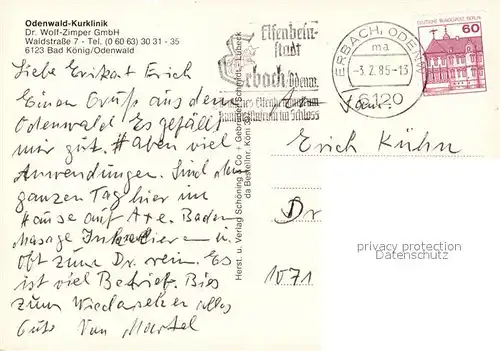 Odenwald-Kurklinik
Dr. Wolf-Zimper GmbH
Waldstraße 7 - Tel. (0 60 63) 30 31 - 35
6123 Bad König/Odenwald
Liebe Erich
Einen Gruß aus dem
Odenwald Es gefällt
mir gut. Haben viel
Anwendungen. Sind den
ganzen Tag hier im
Hause auf Axe. Baden
Massage Inhalieren u.
oft zum Dr. rein. Es
ist viel Betrieb. Bis
zum Wiedersehen alles
Gute Von
Herst. u. Verlag Schöning & Co + Gebrüder Schmidt, Lübeck
da Bestellnr. Köni
Elfenbein-
stadt
Erbach/Odenw.
Deutsches Elfenbeinmuseum
im Schloss
ERBACH, ODENW
ma
-3.2.85-13
6120
DEUTSCHE BUNDESPOST BERLIN
60
Erich Kühn
Dr
1071
privacy protection
Datenschutz